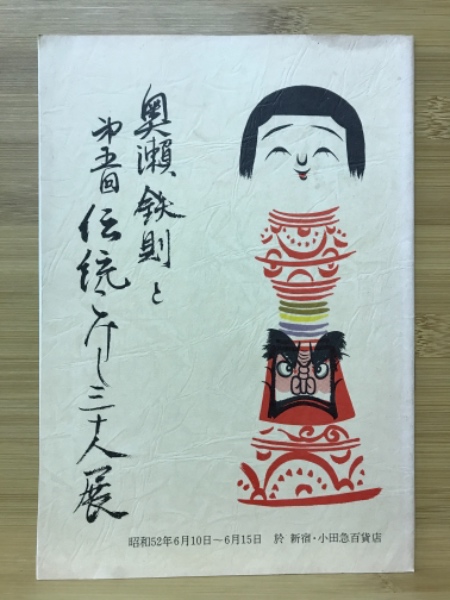 奥瀬鉄則と
第五回
伝統こけし三十人展
昭和52年6月10日〜6月15日 於 新宿・小田急百貨店